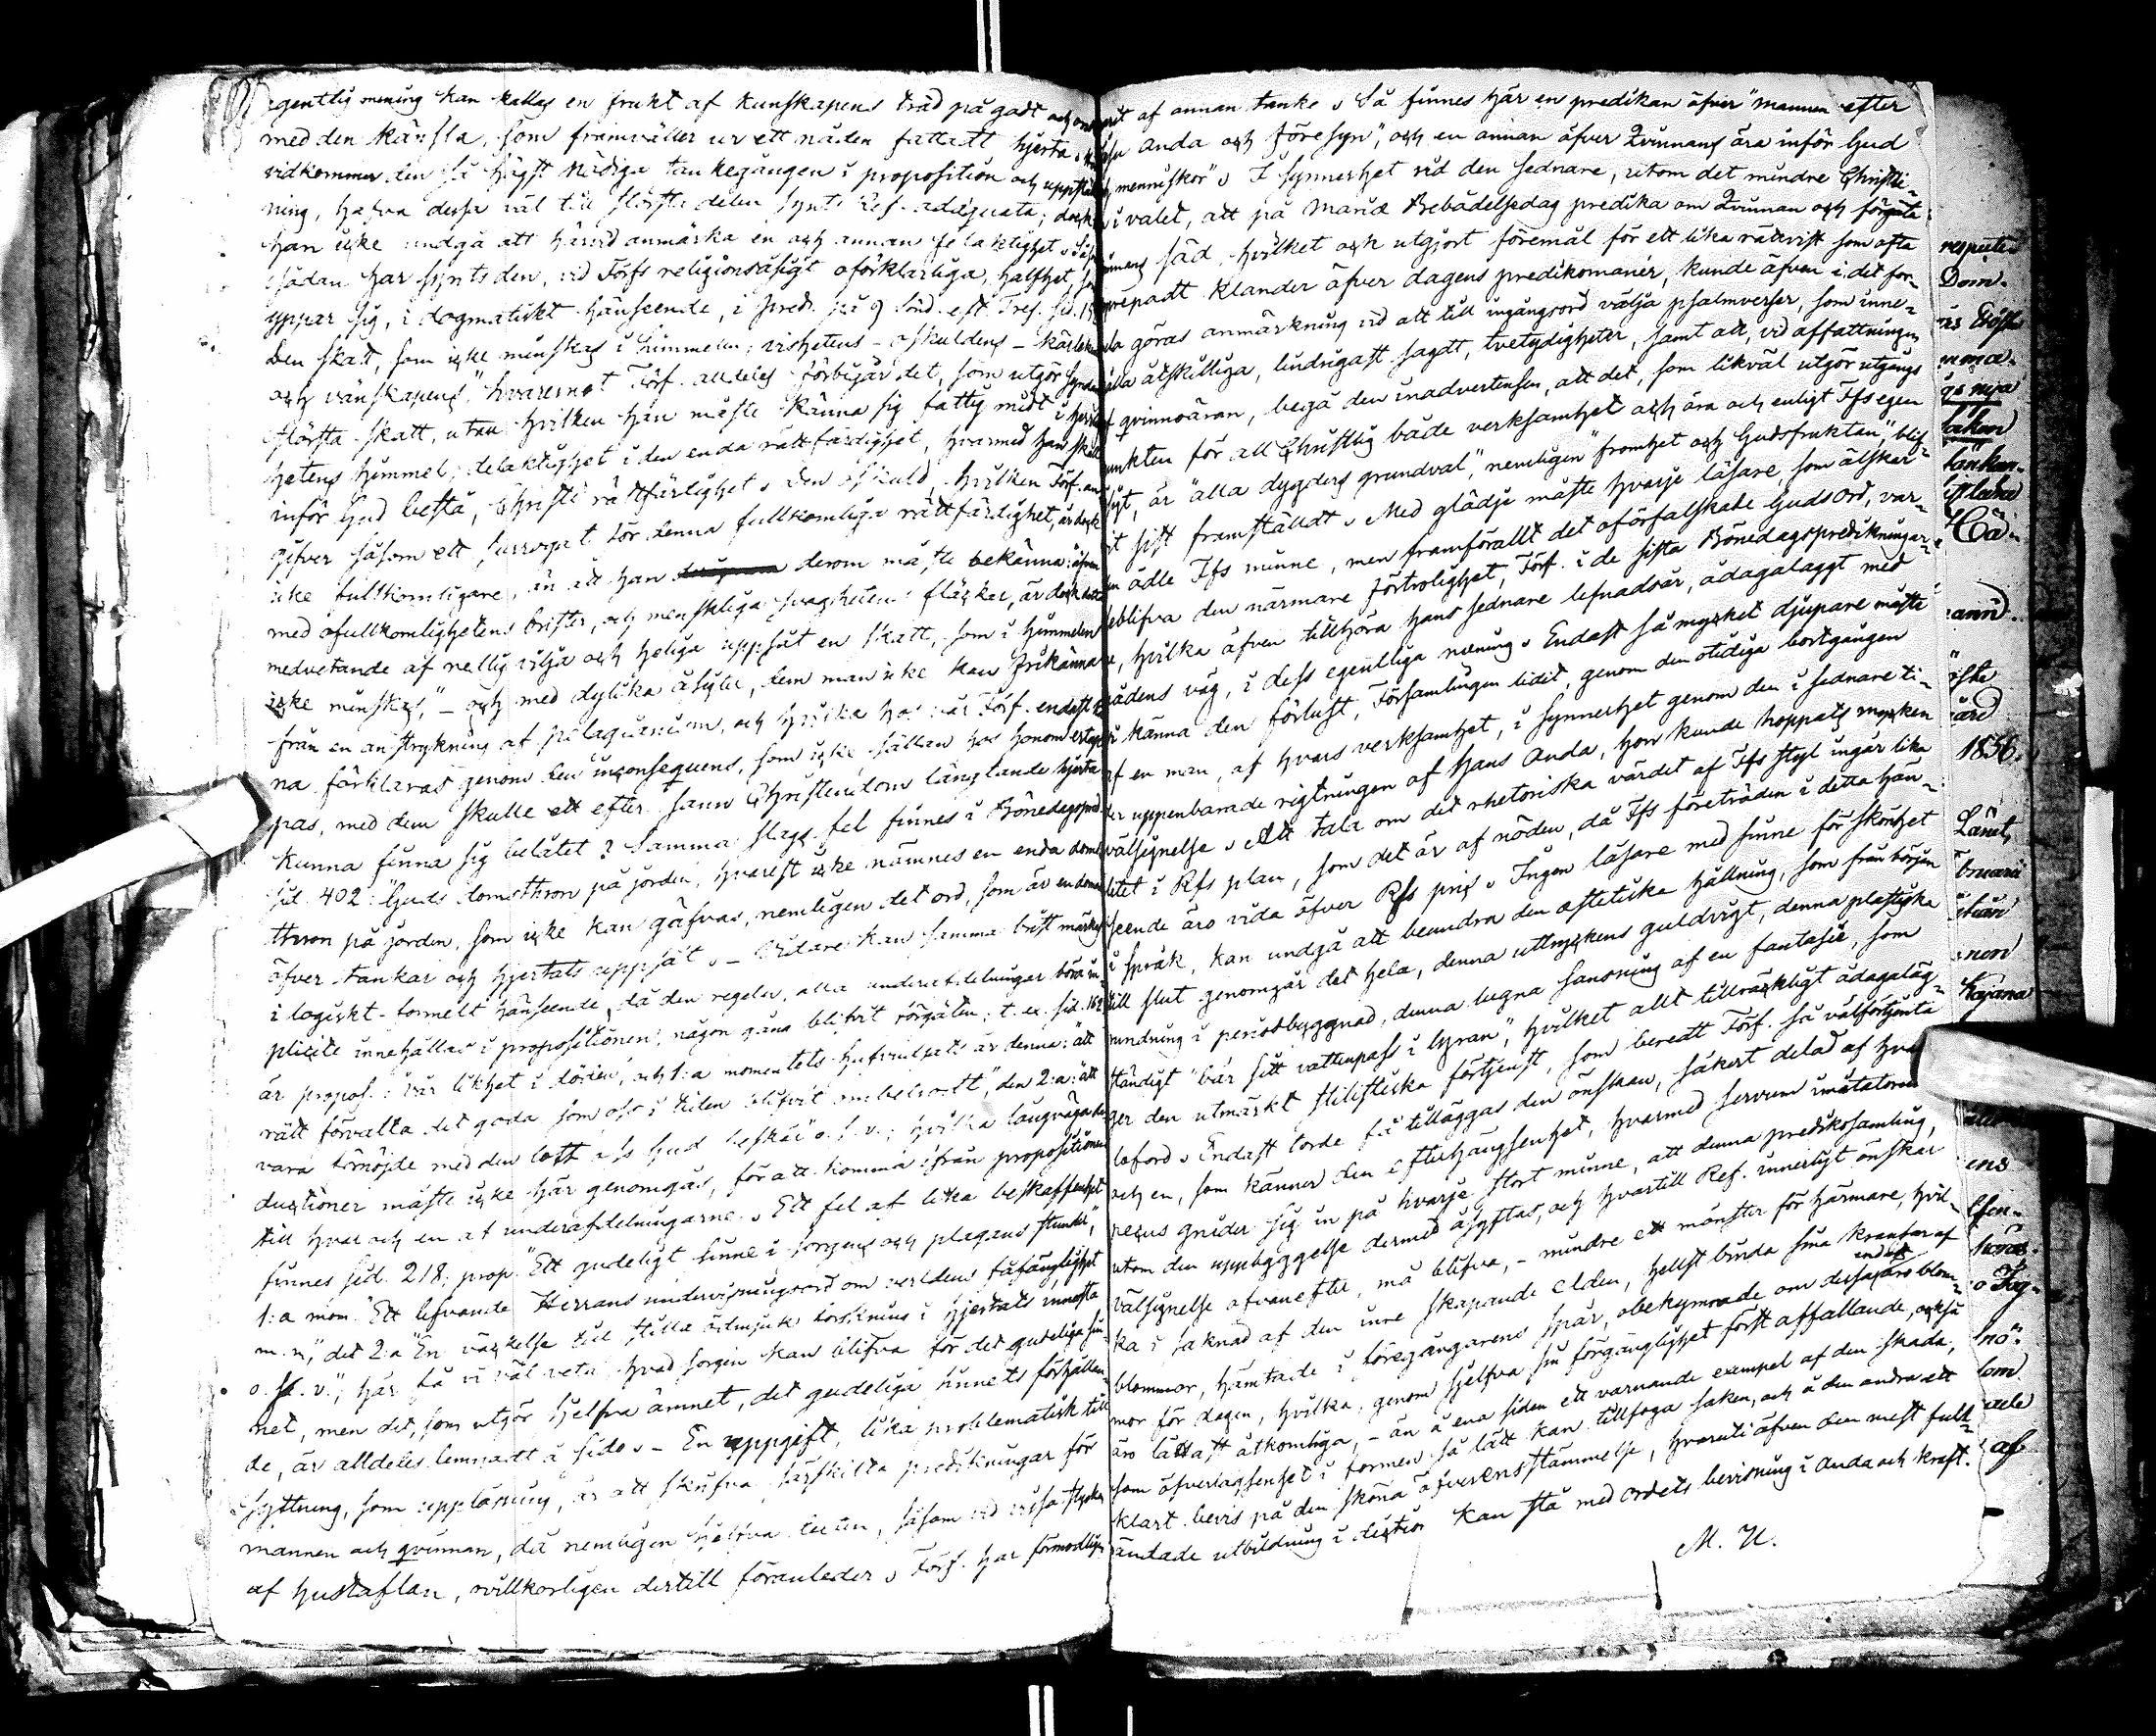 egentlig mening kan kallas en frukt af kunskapens träd på godt och ondt
med den känsla, som framväller ur ett nåden fattadt hjerta.
vidkommer den så högst nödiga tankegången i proposition och uppställ-
ning, hafva dessa väl till största delen synts Ref. adäquata; dock kan
han icke undgå att härvid anmärka en och annan felaktighet.
sådan har synts den, vid Förfs religionsåsigt oförklarliga, halfhet, som
yppar sig, i dogmatiskt hänseende, i pred. på 9 Sönd. eft. Tref. sid.
Den skatt, som icke minskas i himmelen; vishetens - oskuldens - kärlekens
och vänskapens," hvaremot Förf. alldeles förbigår det, som utgör syndarens
största skatt, utan hvilken han måste känna sig fattig midt i herrlig-
hetens himmel; delaktighet i den enda rättfärdighet, hvarmed han skall
inför Gud bestå, Christi rättfärdighet. Den oskuld, hvilken Förf. an-
gifver såsom ett surrogat för denna fullkomliga rättfärdighet, är dock
icke fullkomligare, än att han derom måste bekänna: äfven
med ofullkomlighetens brister, och menskliga svaghetens fläckar, är dock
medvetande af redlig vilja och heliga uppsåt en skatt, som i himmelen
icke minskas," - och med dylika åsigter, dem man icke kan frikänna
från en anstrykning af pelagianism, och hvilka hos vår Förf. endast kun-
na förklaras genom den inconsequens, som icke sällan hos honom ertap-
pas, med dem skulle ett efter sann Christendom längtande hjerta
kunna finna sig belåtet? Samma slags fel finnes i Bönedagspred.
sid. 402: "Guds domsthron på jorden", hvarest icke nämnes en enda doms-
thron på jorden, som icke kan gäfvas, nemligen det ord, som är en domare
öfver tankar och hjertats uppsåt. - Vidare kan samma brist märkas
i logiskt-formelt hänseende, då den regeln, alla underafdelningar böra im-
plicite innehållas i propositionen, någon gång blifvit förgäten; t. ex. sid. 162
är propos.: vår likhet i döden, och 1:a momentets hufvudsats är denna: att
rätt förvalta det goda som oss i tiden blifvit ombetrodt," den 2:a: att
vara förnöjde med den lott oss Gud beskär o. s. v.; hvilka långväga de-
ductioner måste icke här genomgås, för att komma ifrån propositionen
till hvar och en af underafdelningarne. Ett fel af lika beskaffenhet
finnes sid. 218; prop. "Ett gudeligt sinne i sorgens och plågans stunder",
1:a mom. "Ett lifvande Herrans undervisningsord om verldens fåfänglighet
m. m," det 2:a "En väckelse till stilla ödmjuk forskning i hjertats innersta
o. s. v.", här få vi väl veta hvad sorgen kan blifva för det gudeliga sin-
net, men det, som utgör sjelfva ämnet, det gudeliga sinnets förhållan-
de, är alldeles lemnadt å sido. - En uppgift, lika problematisk till
syftning, som upplösning, är att skrifva särskilta predikningar för
mannen och qvinnan, då nemligen sjelfva texten, såsom vid vissa stycken
af hustaflan, ovillkorligen dertill föranleder. Förf. har förmodligen
varit af annan tanke. Så finnes här en predikan öfver "mannen efter
Jesu anda och föresyn", och en annan öfver Qvinnans ära inför Gud
och menniskor". I synnerhet vid den sednare, utom det mindre Christli-
ga i valet, att på Mariæ Bebådelsedag predika om Qvinnan och förgäta
qvinnans säd, hvilket ock utgjort föremål för ett lika rättvist som ofta
upprepadt klander öfver dagens predikomanér, kunde äfven i det for-
mela göras anmärkning vid att till ingångsord välja psalmverser, som inne-
hålla åtskilliga, lindrigast sagdt, tvetydigheter, samt att, vid affattningen
af qvinnoäran, begå den inadvertensen, att det, som likväl utgör utgångs-
punkten för all Christlig både verksamhet och ära och enligt Ffs egen
åsigt, är "alla dygders grundval", nemligen "fromhet och Gudsfruktan", blif-
vit sist framställdt. Med glädje måste hvarje läsare, som älskar
den ädle Ffs minne, men framförallt det oförfalskade Guds ord, var-
seblifva den närmare förtrolighet, Förf. i de sista Bönedagspredikningar-
ne, hvilka äfven tillhöra hans sednare lefnadsår, ådagalaggt med
nådens väg, i dess egentliga mening. Endast så mycket djupare måste
vi känna den förlust, Församlingen lidit, genom den otidiga bortgången
af en man, af hvars verksamhet, i synnerhet genom den i sednare ti-
der uppenbarade rigtningen af hans Anda, hon kunde hoppats mycken
välsignelse. Att tala om det rhetoriska värdet af Ffs styl ingår lika
litet i Rfs plan, som det är af nöden, då Ffs företräden i detta hän-
seende äro vida öfver Rfs pris. Ingen läsare med sinne för skönhet
i språk, kan undgå att beundra den æstetiska hållning, som från början
till slut genomgår det hela, denna uttryckens guldvigt, denna plastiska
rundning i periodbyggnad, denna lugna sansning af en fantasie, som
ständigt "bär sitt vattenpass i lyran", hvilket allt tillräckligt ådagaläg-
ger den utmärkt stilistiska förtjenst, som beredt Förf. så välförtjenta
loford. Endast torde få tilläggas den önskan, säkert delad af hvar
och en, som känner den efterhängsenhet, hvarmed servum imitatorum
pecus gnider sig in på hvarje stort minne, att denna predikosamling,
utom den uppbyggelse dermed åsyftas, och hvartill Ref. innerligt önskar
välsignelse ofvanefter, må blifva, - mindre ett mönster för härmare, hvil-
ka i saknad af den inre skapande elden, hellst binda sina kransar af
blommor, hämtade i föregångarens spår, obekymrade om dessa endast äro blom-
mor för dagen, hvilka, genom sjelfva sin förgänglighet först affallande, också
äro lättast åtkomliga, - än å ena sidan ett varnande exempel af den skada,
som öfverlägsenhet i formen så lätt kan tillfoga saken, och å den andra ett
klart bevis på den sköna öfverensstämmelse, hvaruti äfven den mest full-
ändade utbildning i diction kan stå med Ordets bevisning i Anda och kraft.
M. U.
Dom.
1856.
Länet,
Kajana
af